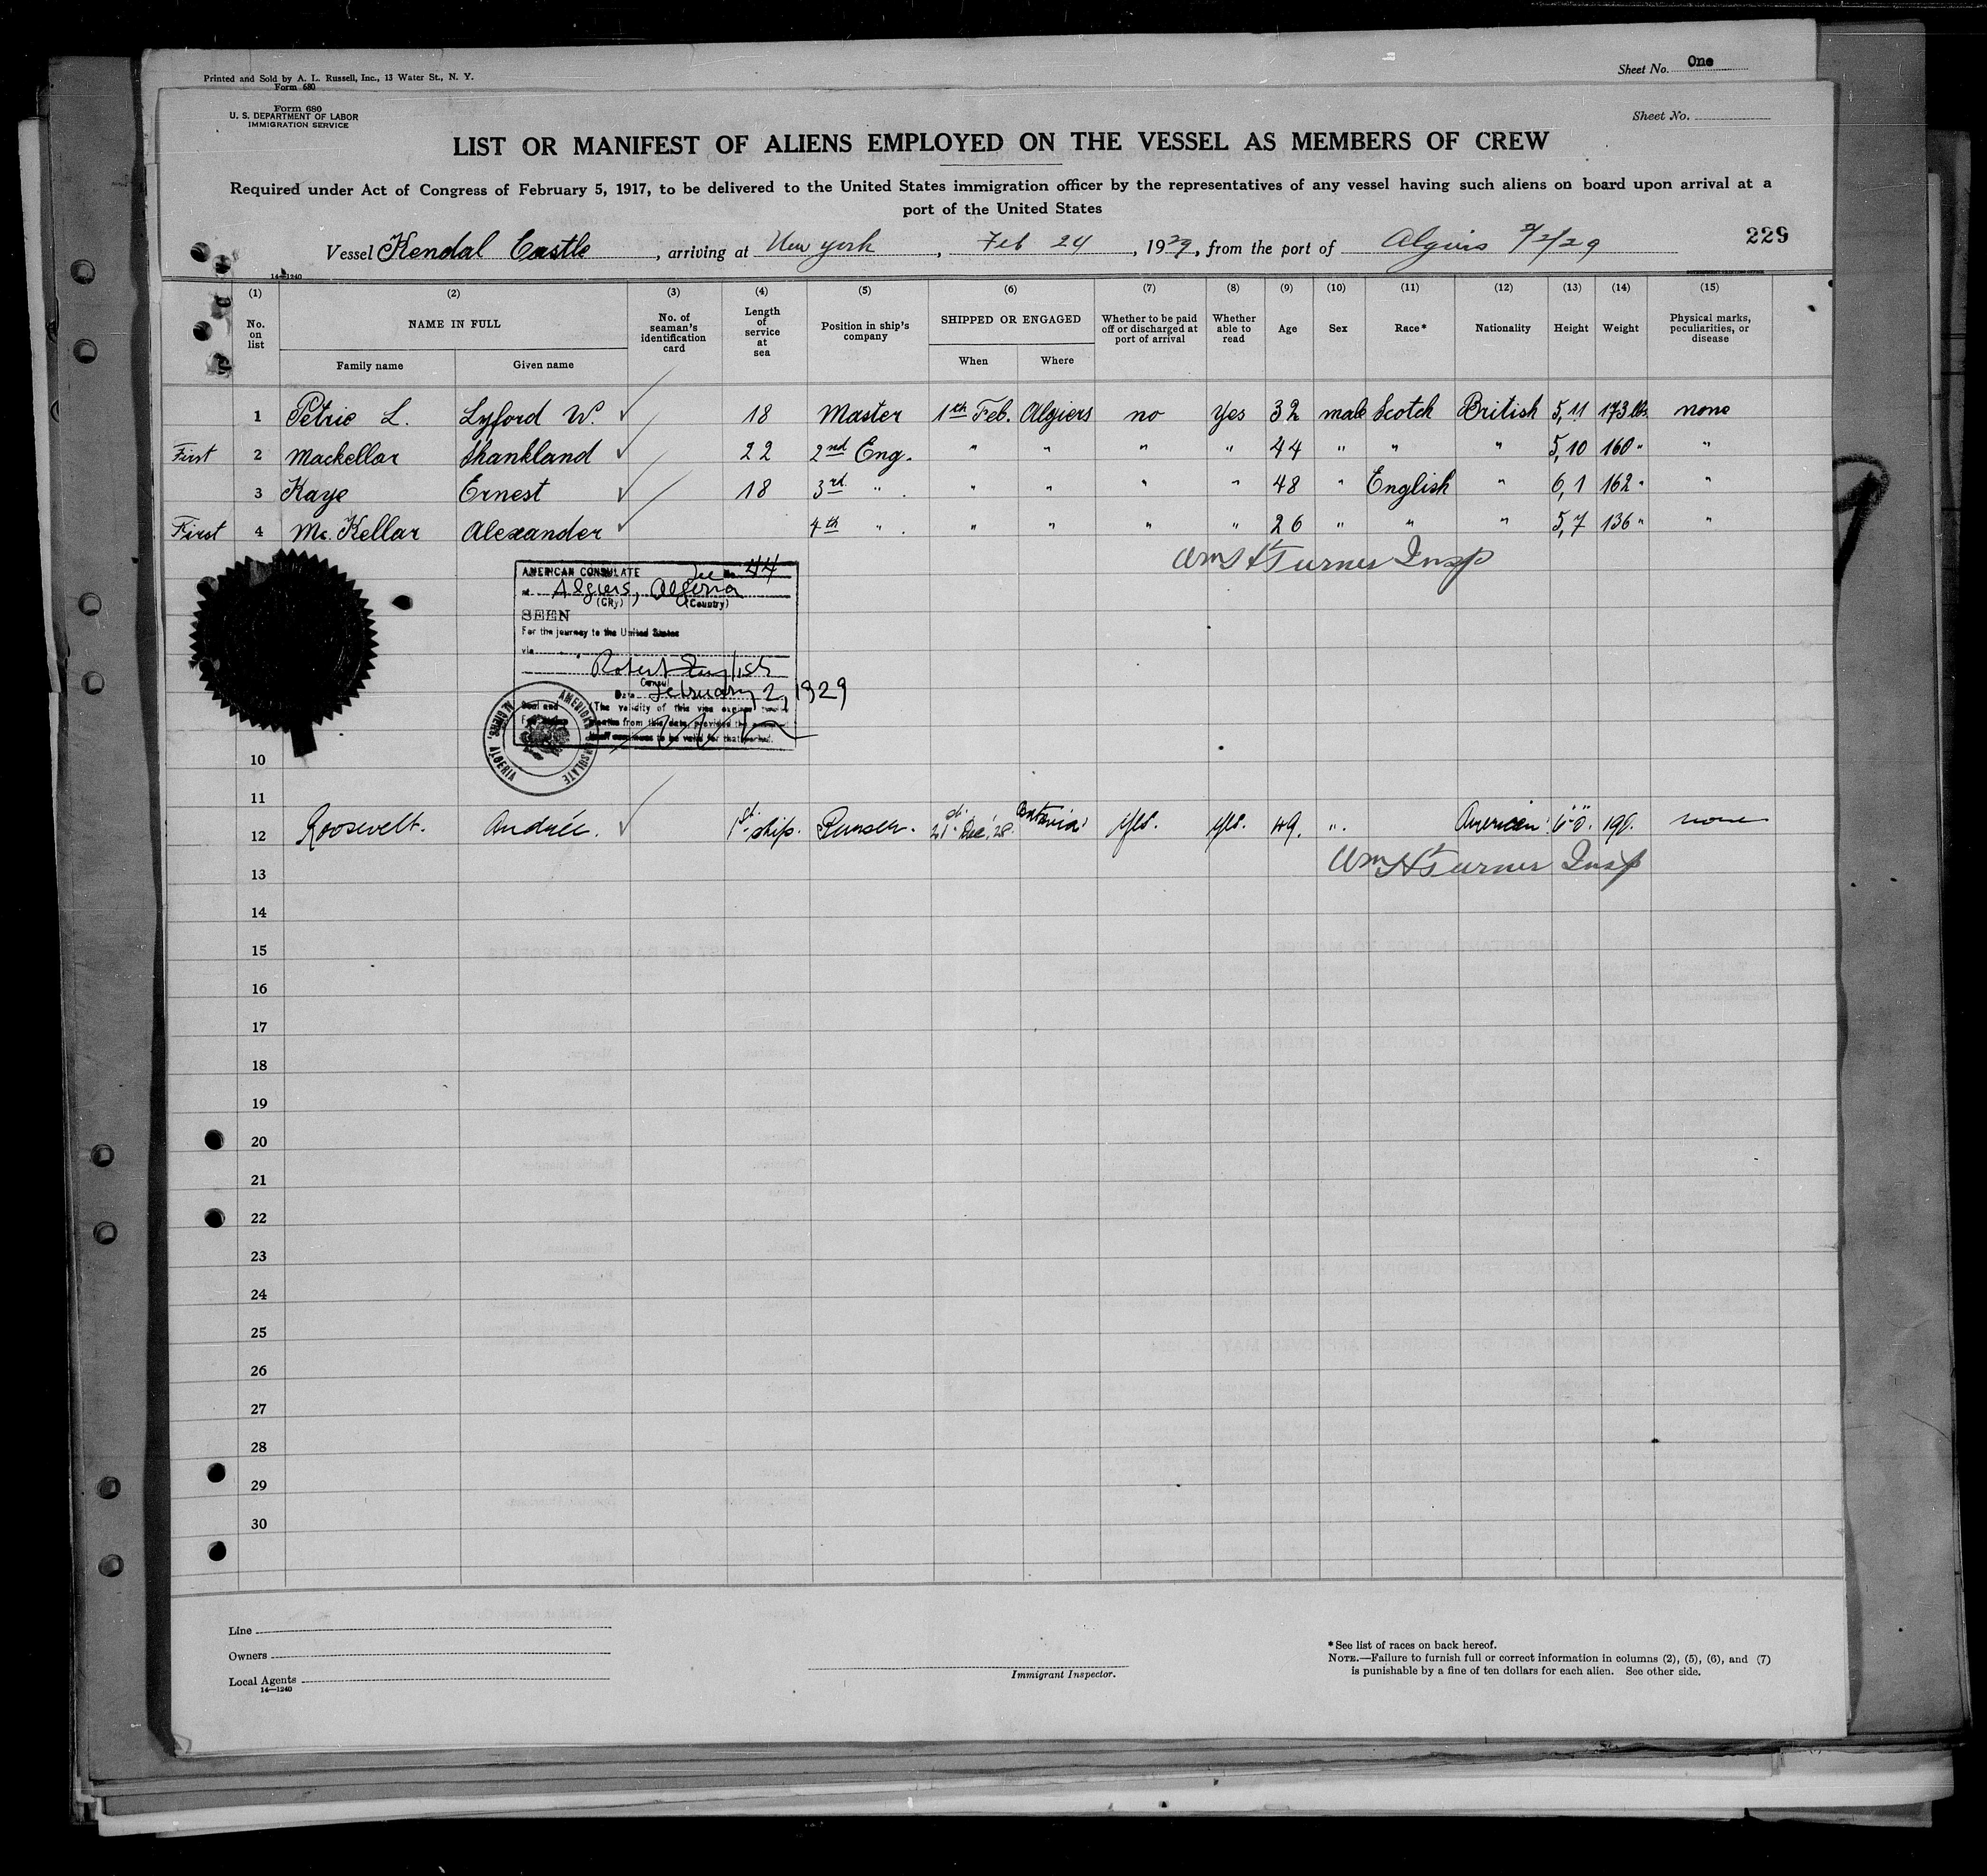 Printed and Sold by A. L. Russell, Inc., 13 Water St., N. Y.
Form 680
Sheet No. One
Form 680
U. S. DEPARTMENT OF LABOR
IMMIGRATION SERVICE
Sheet No.
LIST OR MANIFEST OF ALIENS EMPLOYED ON THE VESSEL AS MEMBERS OF CREW
Required under Act of Congress of February 5, 1917, to be delivered to the United States immigration officer by the representatives of any vessel having such aliens on board upon arrival at a
port of the United States
Vessel Kendal Castle, arriving at New york, Feb 24, 1929, from the port of Algiers 2/2/29
229
14—1240
(1) (2) (3) (4) (5) (6) (7) (8) (9) (10) (11) (12) (13) (14) (15)
No. on list NAME IN FULL No. of seaman's identification card Length of service at sea Position in ship's company SHIPPED OR ENGAGED Whether to be paid off or discharged at port of arrival Whether able to read Age Sex Race* Nationality Height Weight Physical marks, peculiarities, or disease
Family name Given name When Where
1 Petrie L. Lyford W. 18 Master 1th Feb. Algiers no Yes 32 male Scotch British 5,11 173 lbs. none
First 2 Mackellar Shankland 22 2nd Eng. " " " " 44 " " " 5,10 160 " "
3 Kaye Ernest 18 3rd " " " " " 48 " English " 6,1 162 " "
First 4 Mc. Kellar Alexander 4th " " " " " 26 " " " 5,7 136 " "
Wm H Turner Insp
AMERICAN CONSULATE No. 44
at Algiers, Algeria
(City) (Country)
SEEN
For the journey to the United States
via
Robert English
Consul
Date February 2, 1929
Seal and (The validity of this visa expires
months from this date, provided the
continues to be valid for that period.
AMERICAN CONSULATE ALGIERS, ALGERIA
10
11
12 Roosevelt. André. 1st ship. Purser. 21st Dec, '28. Batavia yes. yes. 49. ". American 6'0". 190. none
Wm H Turner Insp
13
14
15
16
17
18
19
20
21
22
23
24
25
26
27
28
29
30
Line
Owners
Local Agents
14—1240
Immigrant Inspector.
*See list of races on back hereof.
NOTE.—Failure to furnish full or correct information in columns (2), (5), (6), and (7)
is punishable by a fine of ten dollars for each alien. See other side.